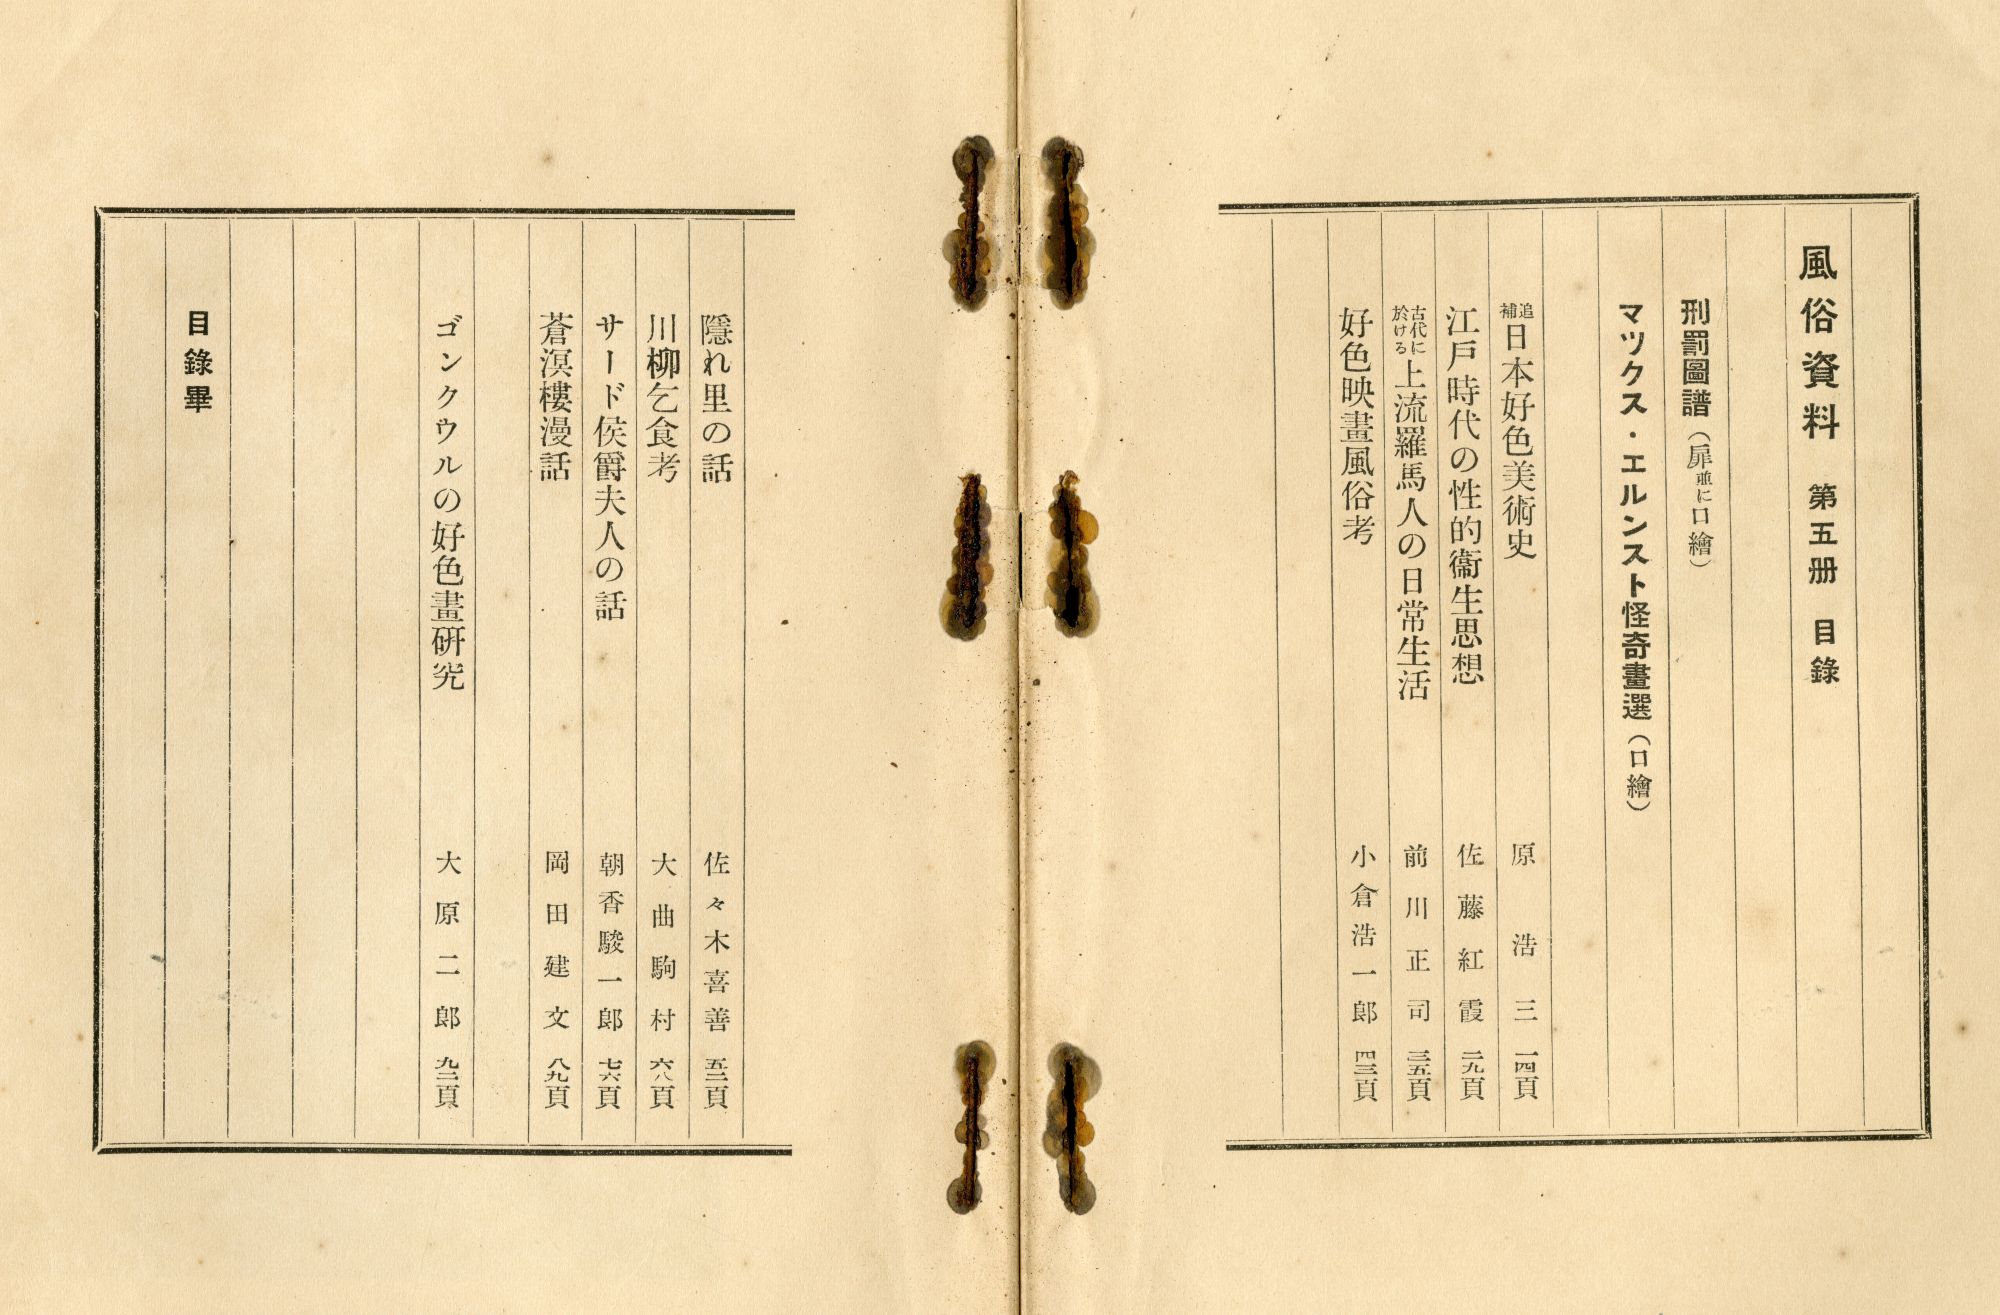 風俗資料 第五册 目錄
刑罰圖譜(扉並に口繪)
マツクス・エルンスト怪奇畫選(口繪)
追補日本好色美術史 原浩三 一四頁
江戸時代の性的衞生思想 佐藤紅霞 二九頁
古代に於ける上流羅馬人の日常生活 前川正司 三五頁
好色映畫風俗考 小倉浩一郎 四三頁
隱れ里の話 佐々木喜善 五二頁
川柳乞食考 大曲駒村 六八頁
サード侯爵夫人の話 朝香駿一郎 七六頁
蒼溟樓漫話 岡田建文 八九頁
ゴンクウルの好色畫研究 大原二郎 九二頁
目錄畢